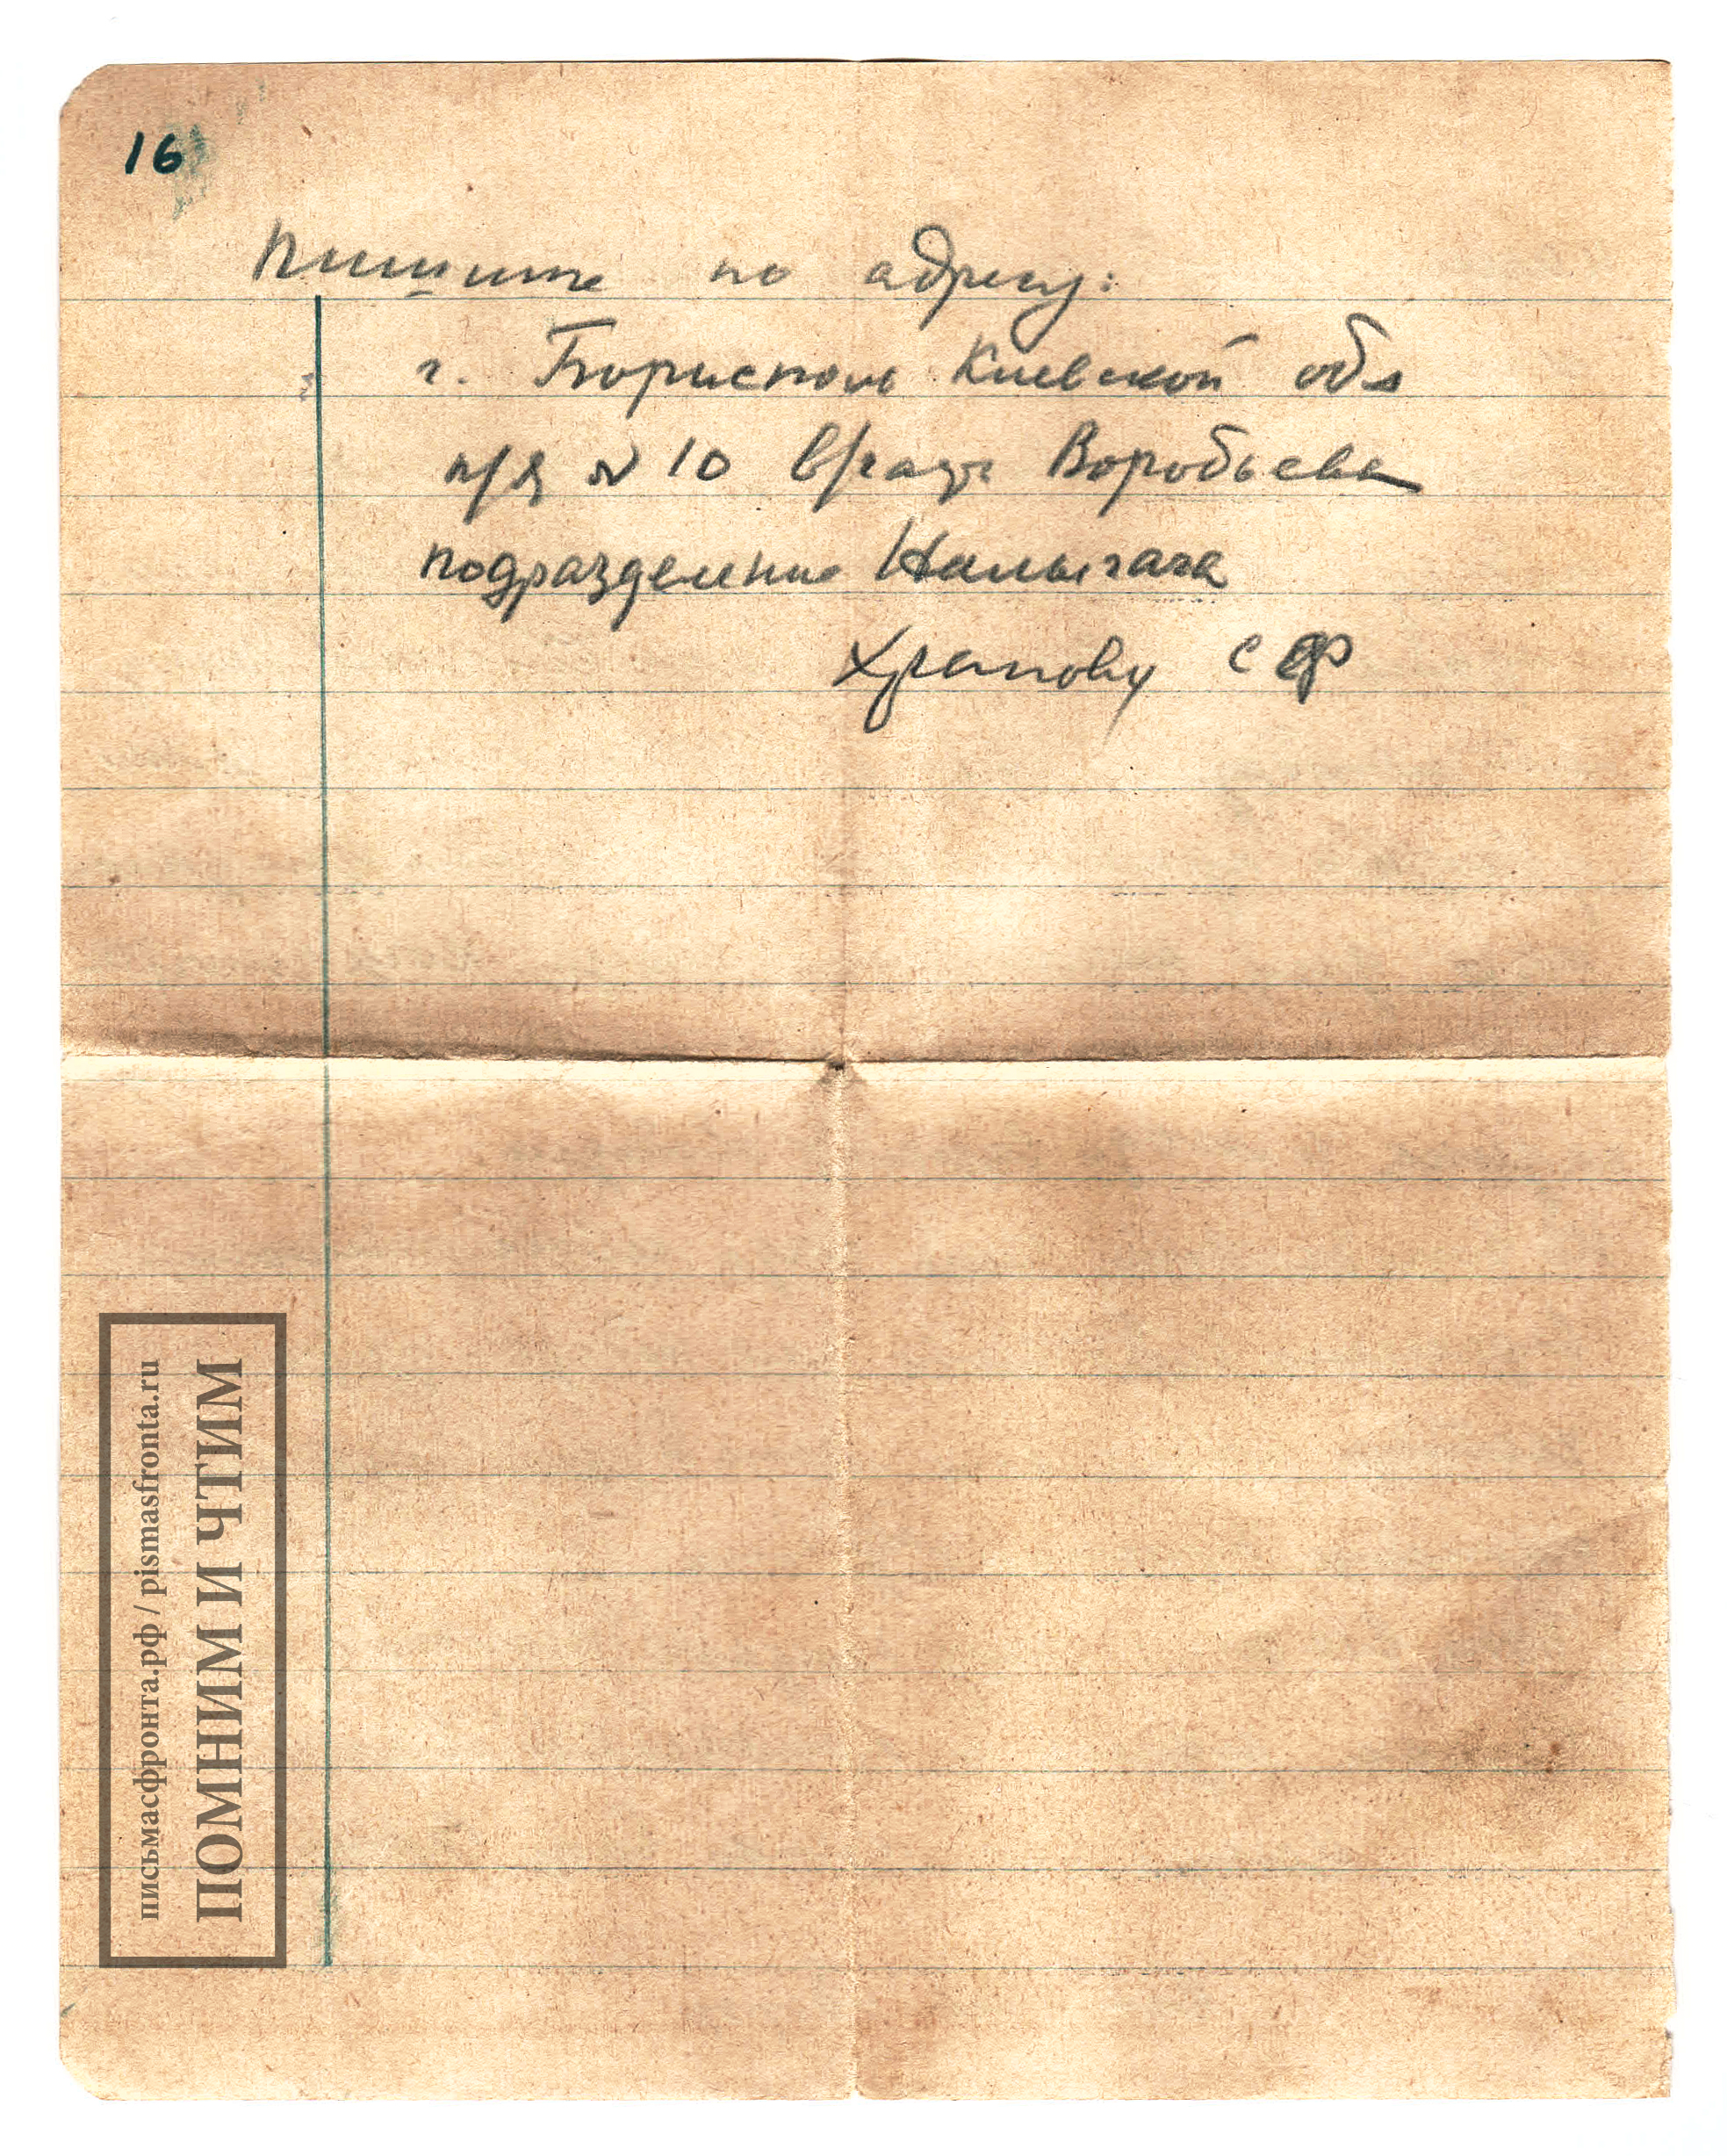 16
Пишите по адресу:
г. Борисполь Киевской обл
п/я № 10 Воробьева
подразделение
Храпову С Ф
письмасфронта.рф / pismasfronta.ru
ПОМНИМ И ЧТИМ